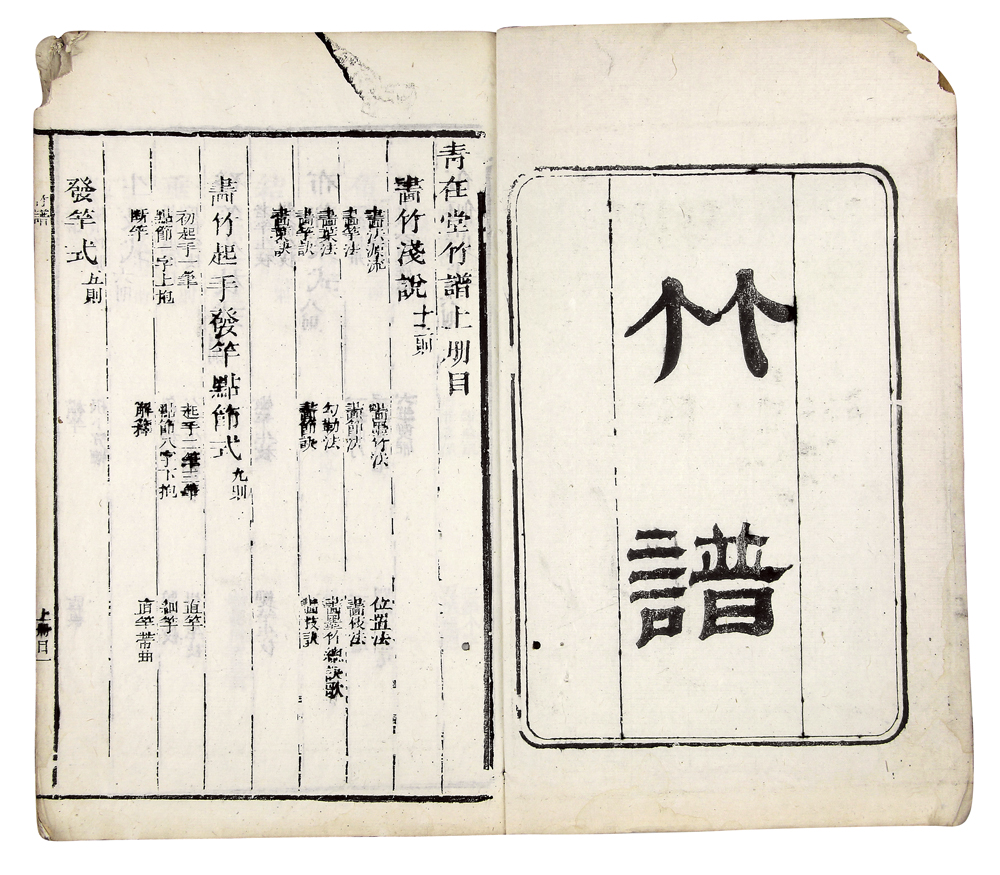 竹譜
青在堂竹譜上册目
畫竹淺說 十二則
畫法源流 畫墨竹法 位置法
畫竿法 畫節法 畫枝法
畫葉法 勾勒法 畫墨竹總訣歌
畫竿訣 畫節訣 畫枝訣
畫葉訣
畫竹起手發竿點節式 九則
初起手一筆 起手二筆三筆 直竿
點節一字上抱 點節八字下抱 細竿
斷竿 解籜 直竿帶曲
發竿式 五則
竹譜 上册目 一